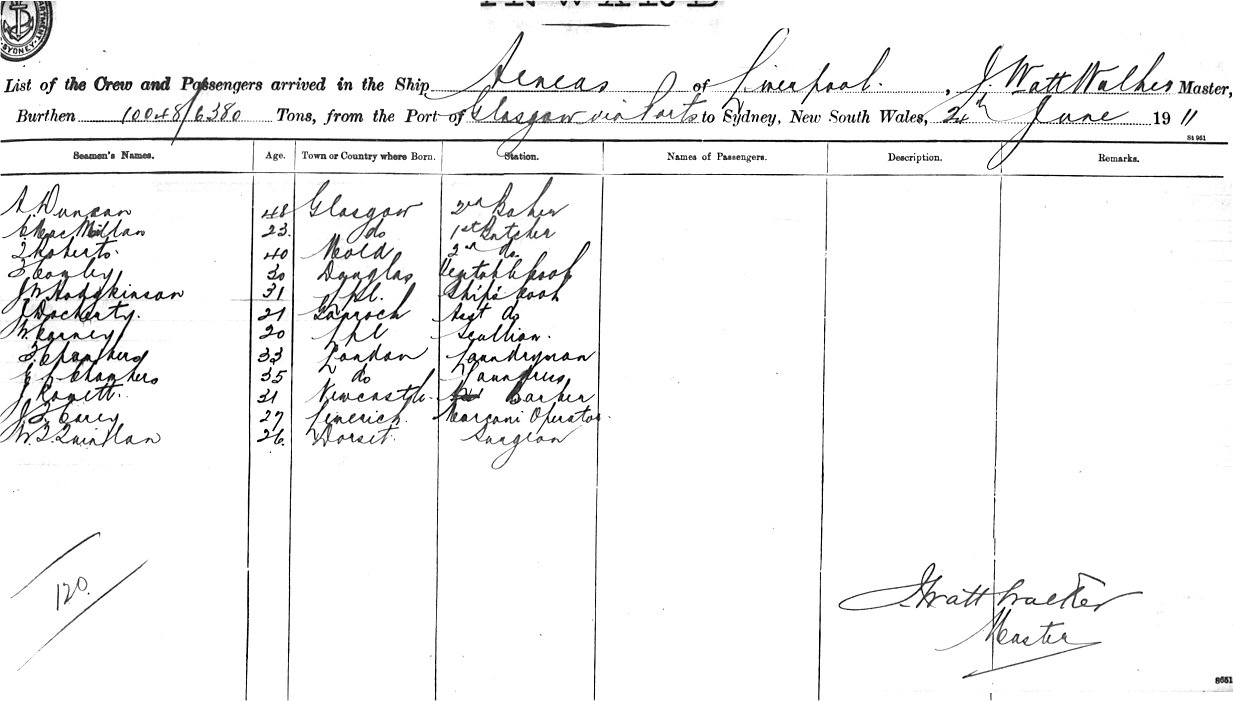 INWARD
SYDNEY
List of the Crew and Passengers arrived in the Ship Aeneas of Liverpool. , J. Watt Walker Master,
Burthen 10048/6380 Tons, from the Port of Glasgow via Ports to Sydney, New South Wales, 24th June 1911
St 961
Seamen's Names. Age. Town or Country where Born. Station. Names of Passengers. Description. Remarks.
A. Duncan 48 Glasgow 2nd Baker
C MacMillan 23 do 1st Butcher
Roberts 40 Mold 2nd do
30 Douglas Cook
J W Hodgkinson 31 Lpl. Ship's Cook
J Docherty. 21 Asst do
W. Kearney 20 Lpl Scullion.
F. Chambers 33 London Laundryman
E L Chambers 35 do Laundress
J 31 Newcastle. Barker
J. F. Carey 27 Limerick. Marconi Operator.
W. F. Quinlan 26. Dorset. Surgeon
120.
J. Watt Walker
Master
8651